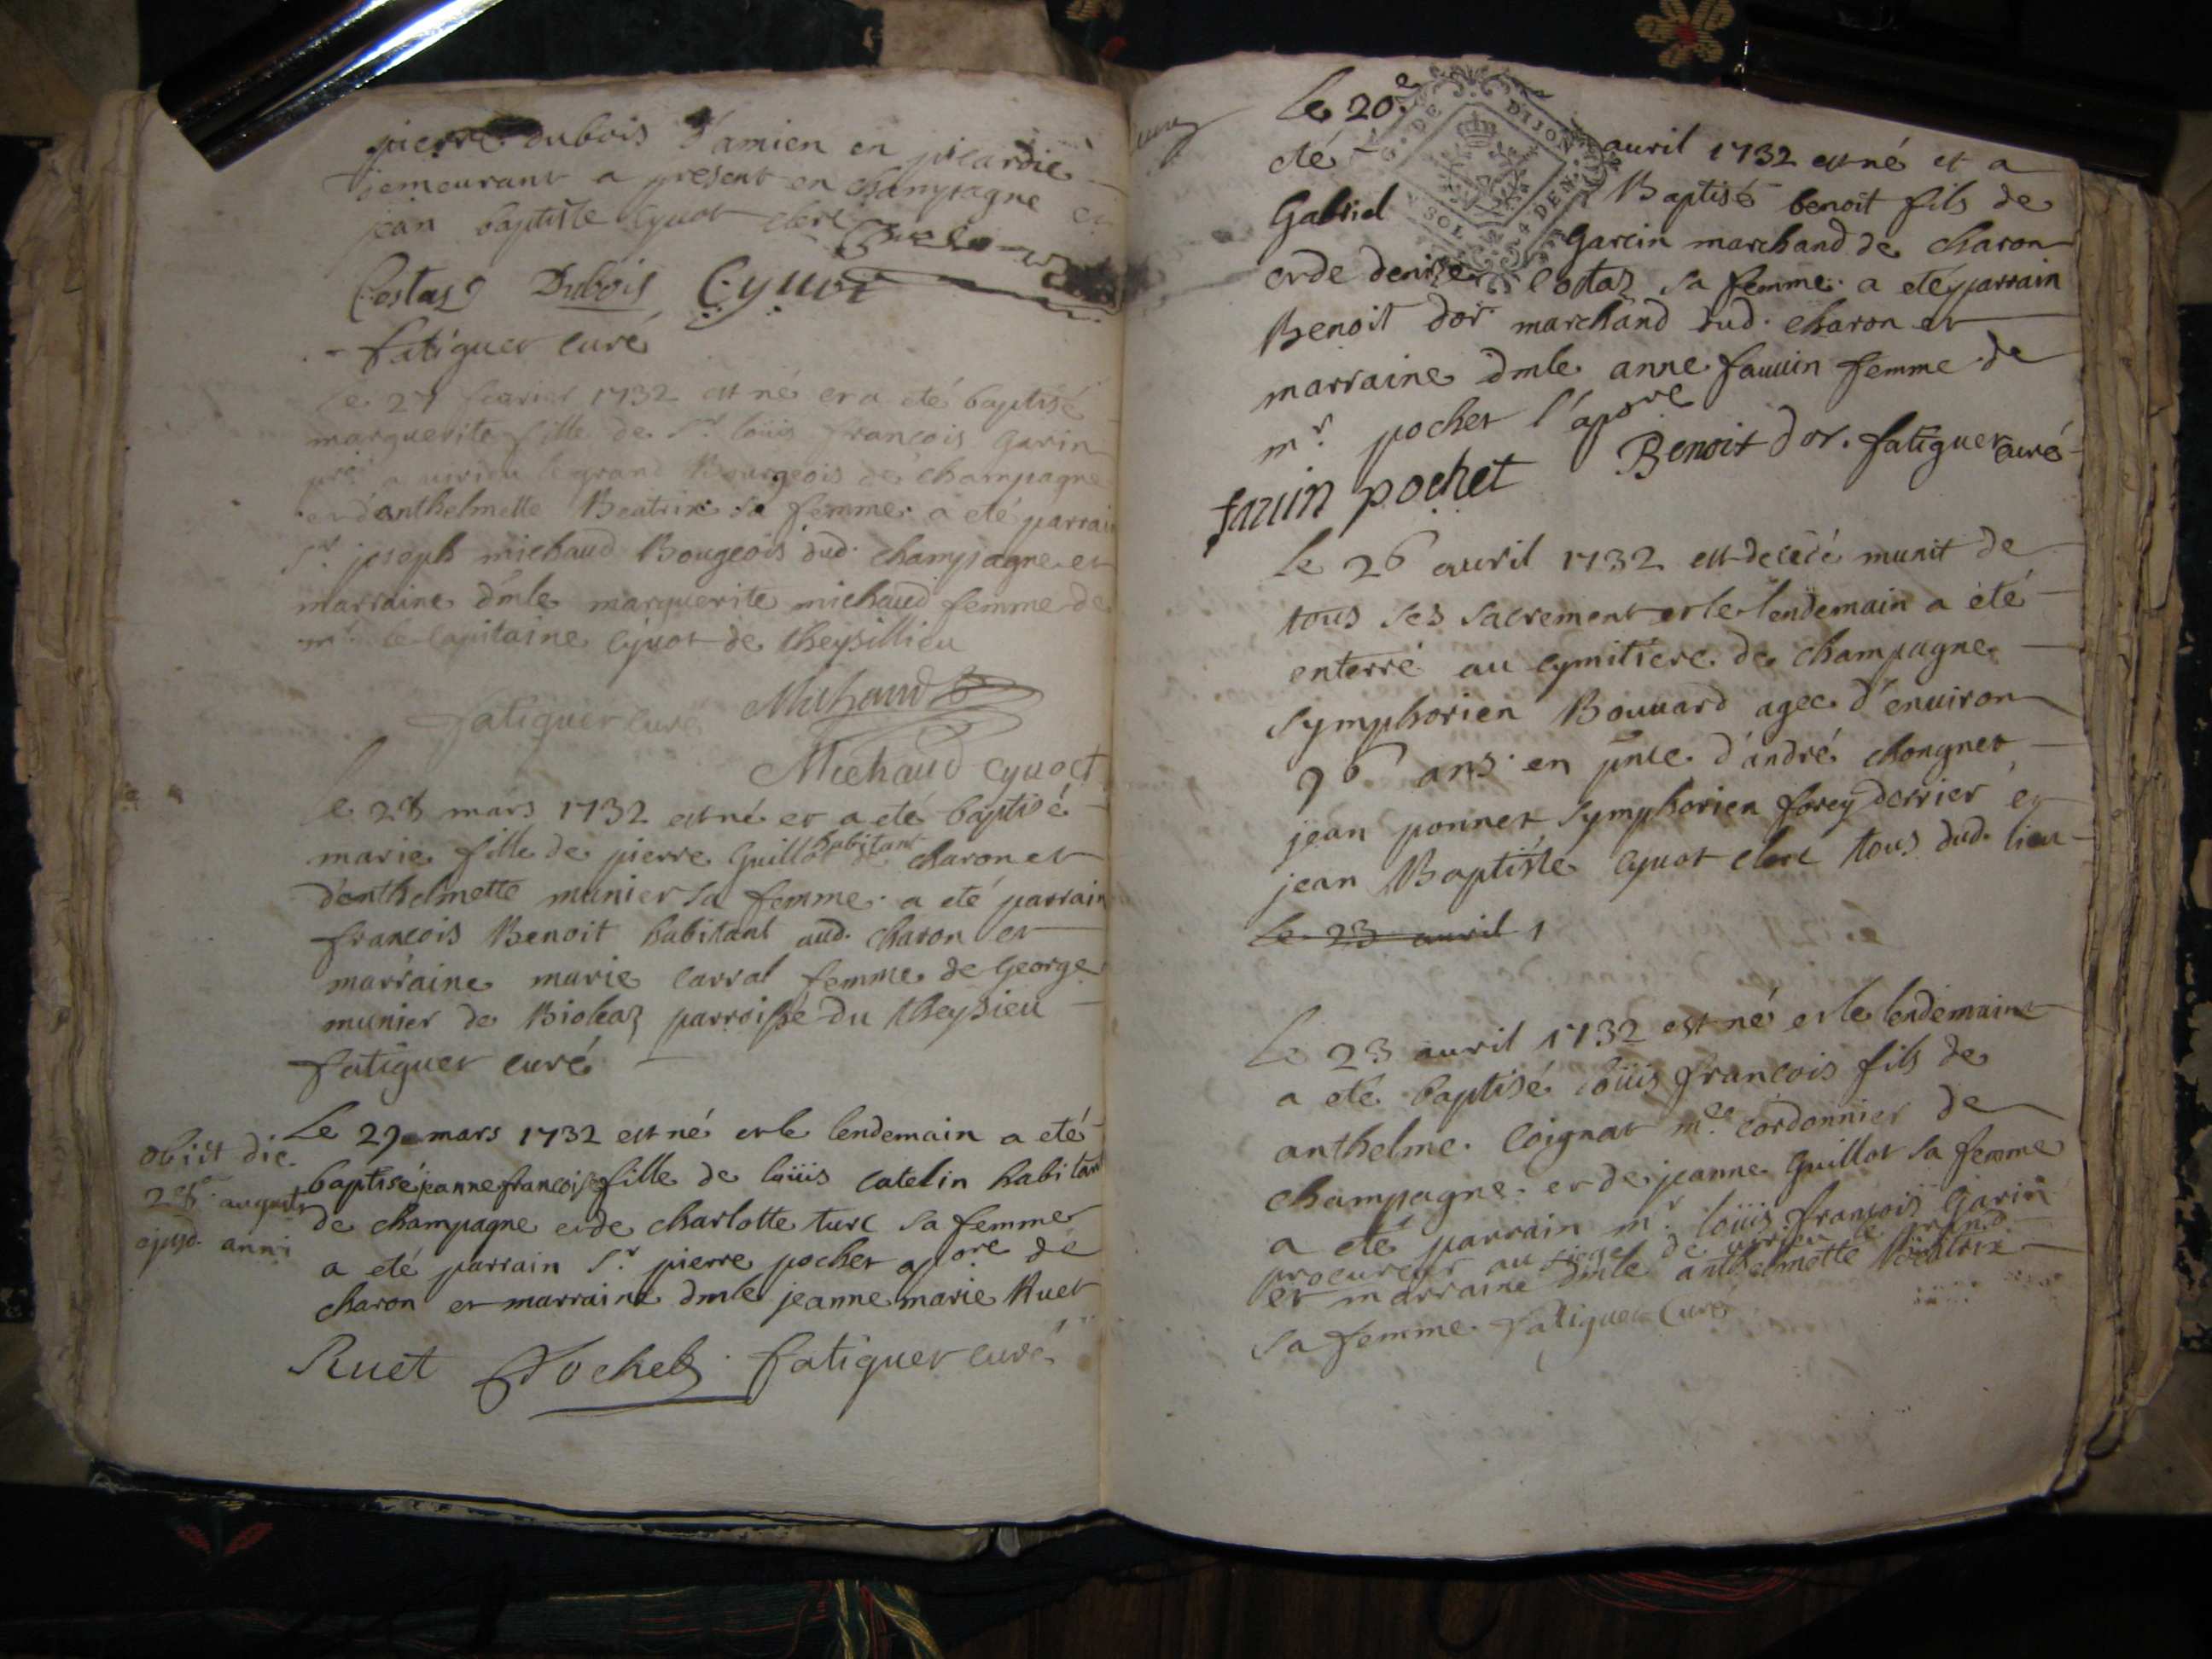 pierre dubois d'amien en picardie
demeurant a present en champagne et
jean baptiste Cyuot clerc
Costaz Dubois Cyuot
fatiguet curé
le 27 feurier 1732 est né et a eté baptisé
marguerite fille de Sr. loüis francois Garin
a uirieu le grand Bourgeois de champagne
et d'anthelmette Beatrix sa femme. a eté parrain
Sr. joseph michaud Bougeois dud. champagne et
marraine dmle marguerite michaud femme de
mr. le Capitaine Cyuot de theysillieu
fatiguet curé Michaud
Michaud cyuoct
le 28 mars 1732 est né et a eté baptisé
marie fille de pierre Guillot habitant de charon et
d'anthelmette munier sa femme. a eté parrain
francois Benoit habitant aud. charon et
marraine marie carral femme de George
munier de Bioleaz parroisse du theysieu
fatiguet curé
obiit die.
28e. augusti
ejusd. anni
Le 29 mars 1732 est né et le lendemain a eté
baptisé jeanne francoise fille de loüis catelin habitant
de champagne et de charlotte turc sa femme
a eté parrain Sr. pierre pochet apore de
charon et marraine dmle jeanne marie Ruet
Ruet Pochet fatiguet curé
Le 20e. auril 1732 est né et a
eté Baptisé benoit fils de
Gabriel Garcin marchand de charon
et de denise Costaz sa femme. a eté parrain
Benoit dor marchand dud. charon et
marraine dmle anne fauuin femme de
mr. pochet l'apore
fauin pochet Benoit dor. fatiguet curé
G. DE DIJON
1 SOL 4 DEN.
Le 26 auril 1732 est decedé munit de
tous ses sacrement et le lendemain a été
enterré au cymitiere de champagne
symphorien Bouuard agée d'enuiron
76 ans en pnce d'andré chongnet
jean ponnet symphorien forey derrier et
jean Baptiste Cyuot clerc tous dud. lieu
Le 23 auril 1
Le 23 auril 1732 est né et le lendemaint
a eté baptisé loüis francois fils de
anthelme. Coignat me. cordonnier de
champagne. et de jeanne Guillot sa femme
a eté parrain mr. loüis francois Garin
procureur au siege de uirieu le grand
et marraine dmle anthelmette Beatrix
sa femme. fatiguet Curé